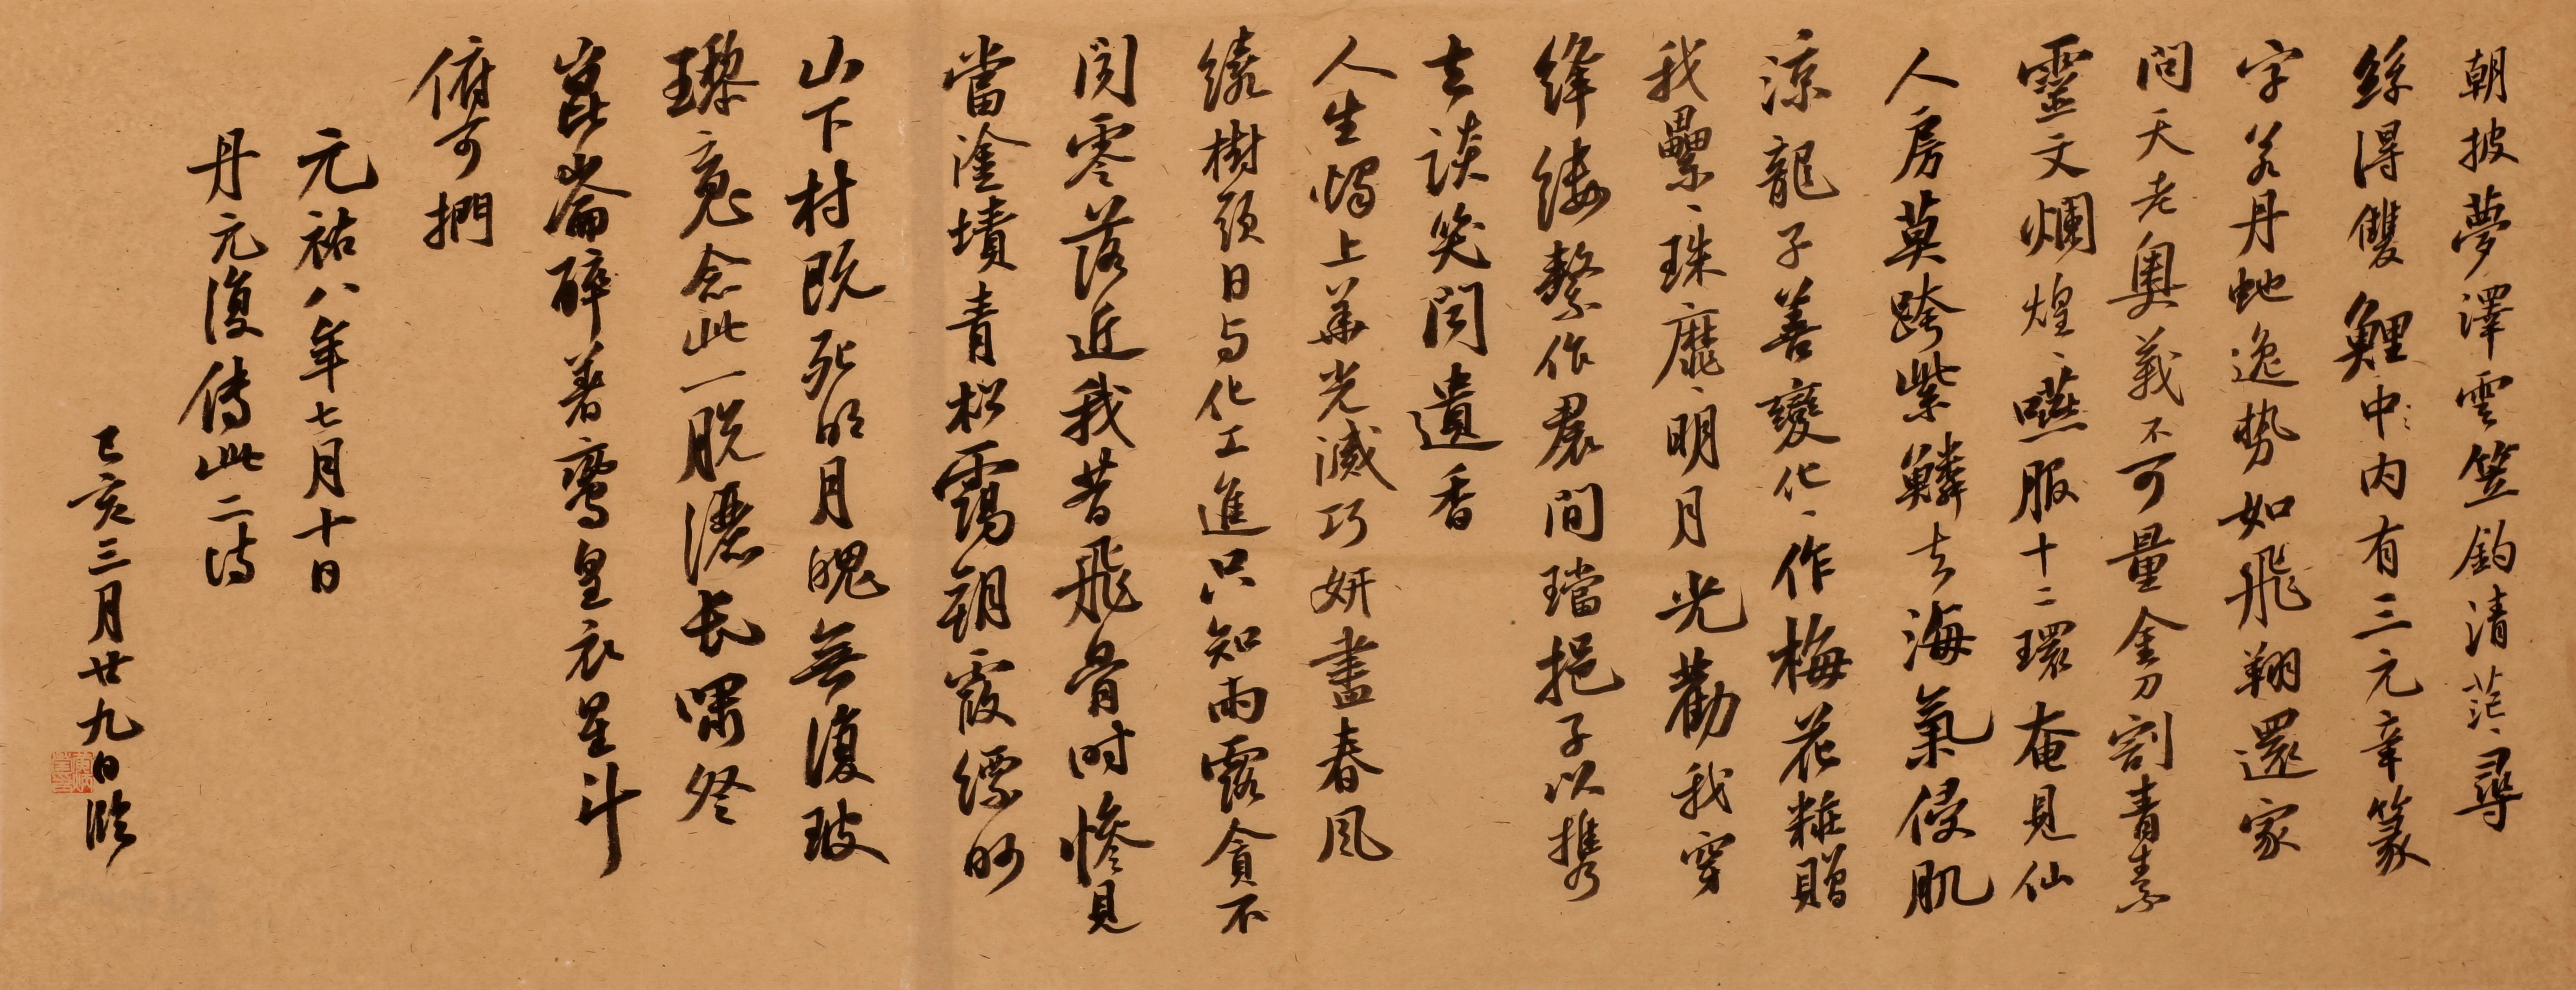 朝披夢澤雲笠釣清茫、尋
絲得雙鯉中:内有三元章篆
字若丹虵逸势如飛翔還家
問天老奧義不可量金刀割青素
靈文爛煌、嚥服十二環奄見仙
人房莫跨紫鱗去海氣侵肌
涼龍子善變化、作梅花粧贈
我纍、珠靡、明月光勸我穿
絳縷繫作裠間璫挹子以携
去談笑聞遺香
人生燭上華光滅巧妍盡春風
繞樹頭日与化工進只知雨露貪不
聞零落近我昔飛骨时惨見
當塗墳青松靄朝霞缥眇
山下村既死明月魄無復玻
瓈魂念此一脱灑长嘯登
崑崙醉著鸞皇衣星斗
俯可捫
元祐八年七月十日
丹元復傳此二诗
己亥三月廿九日臨